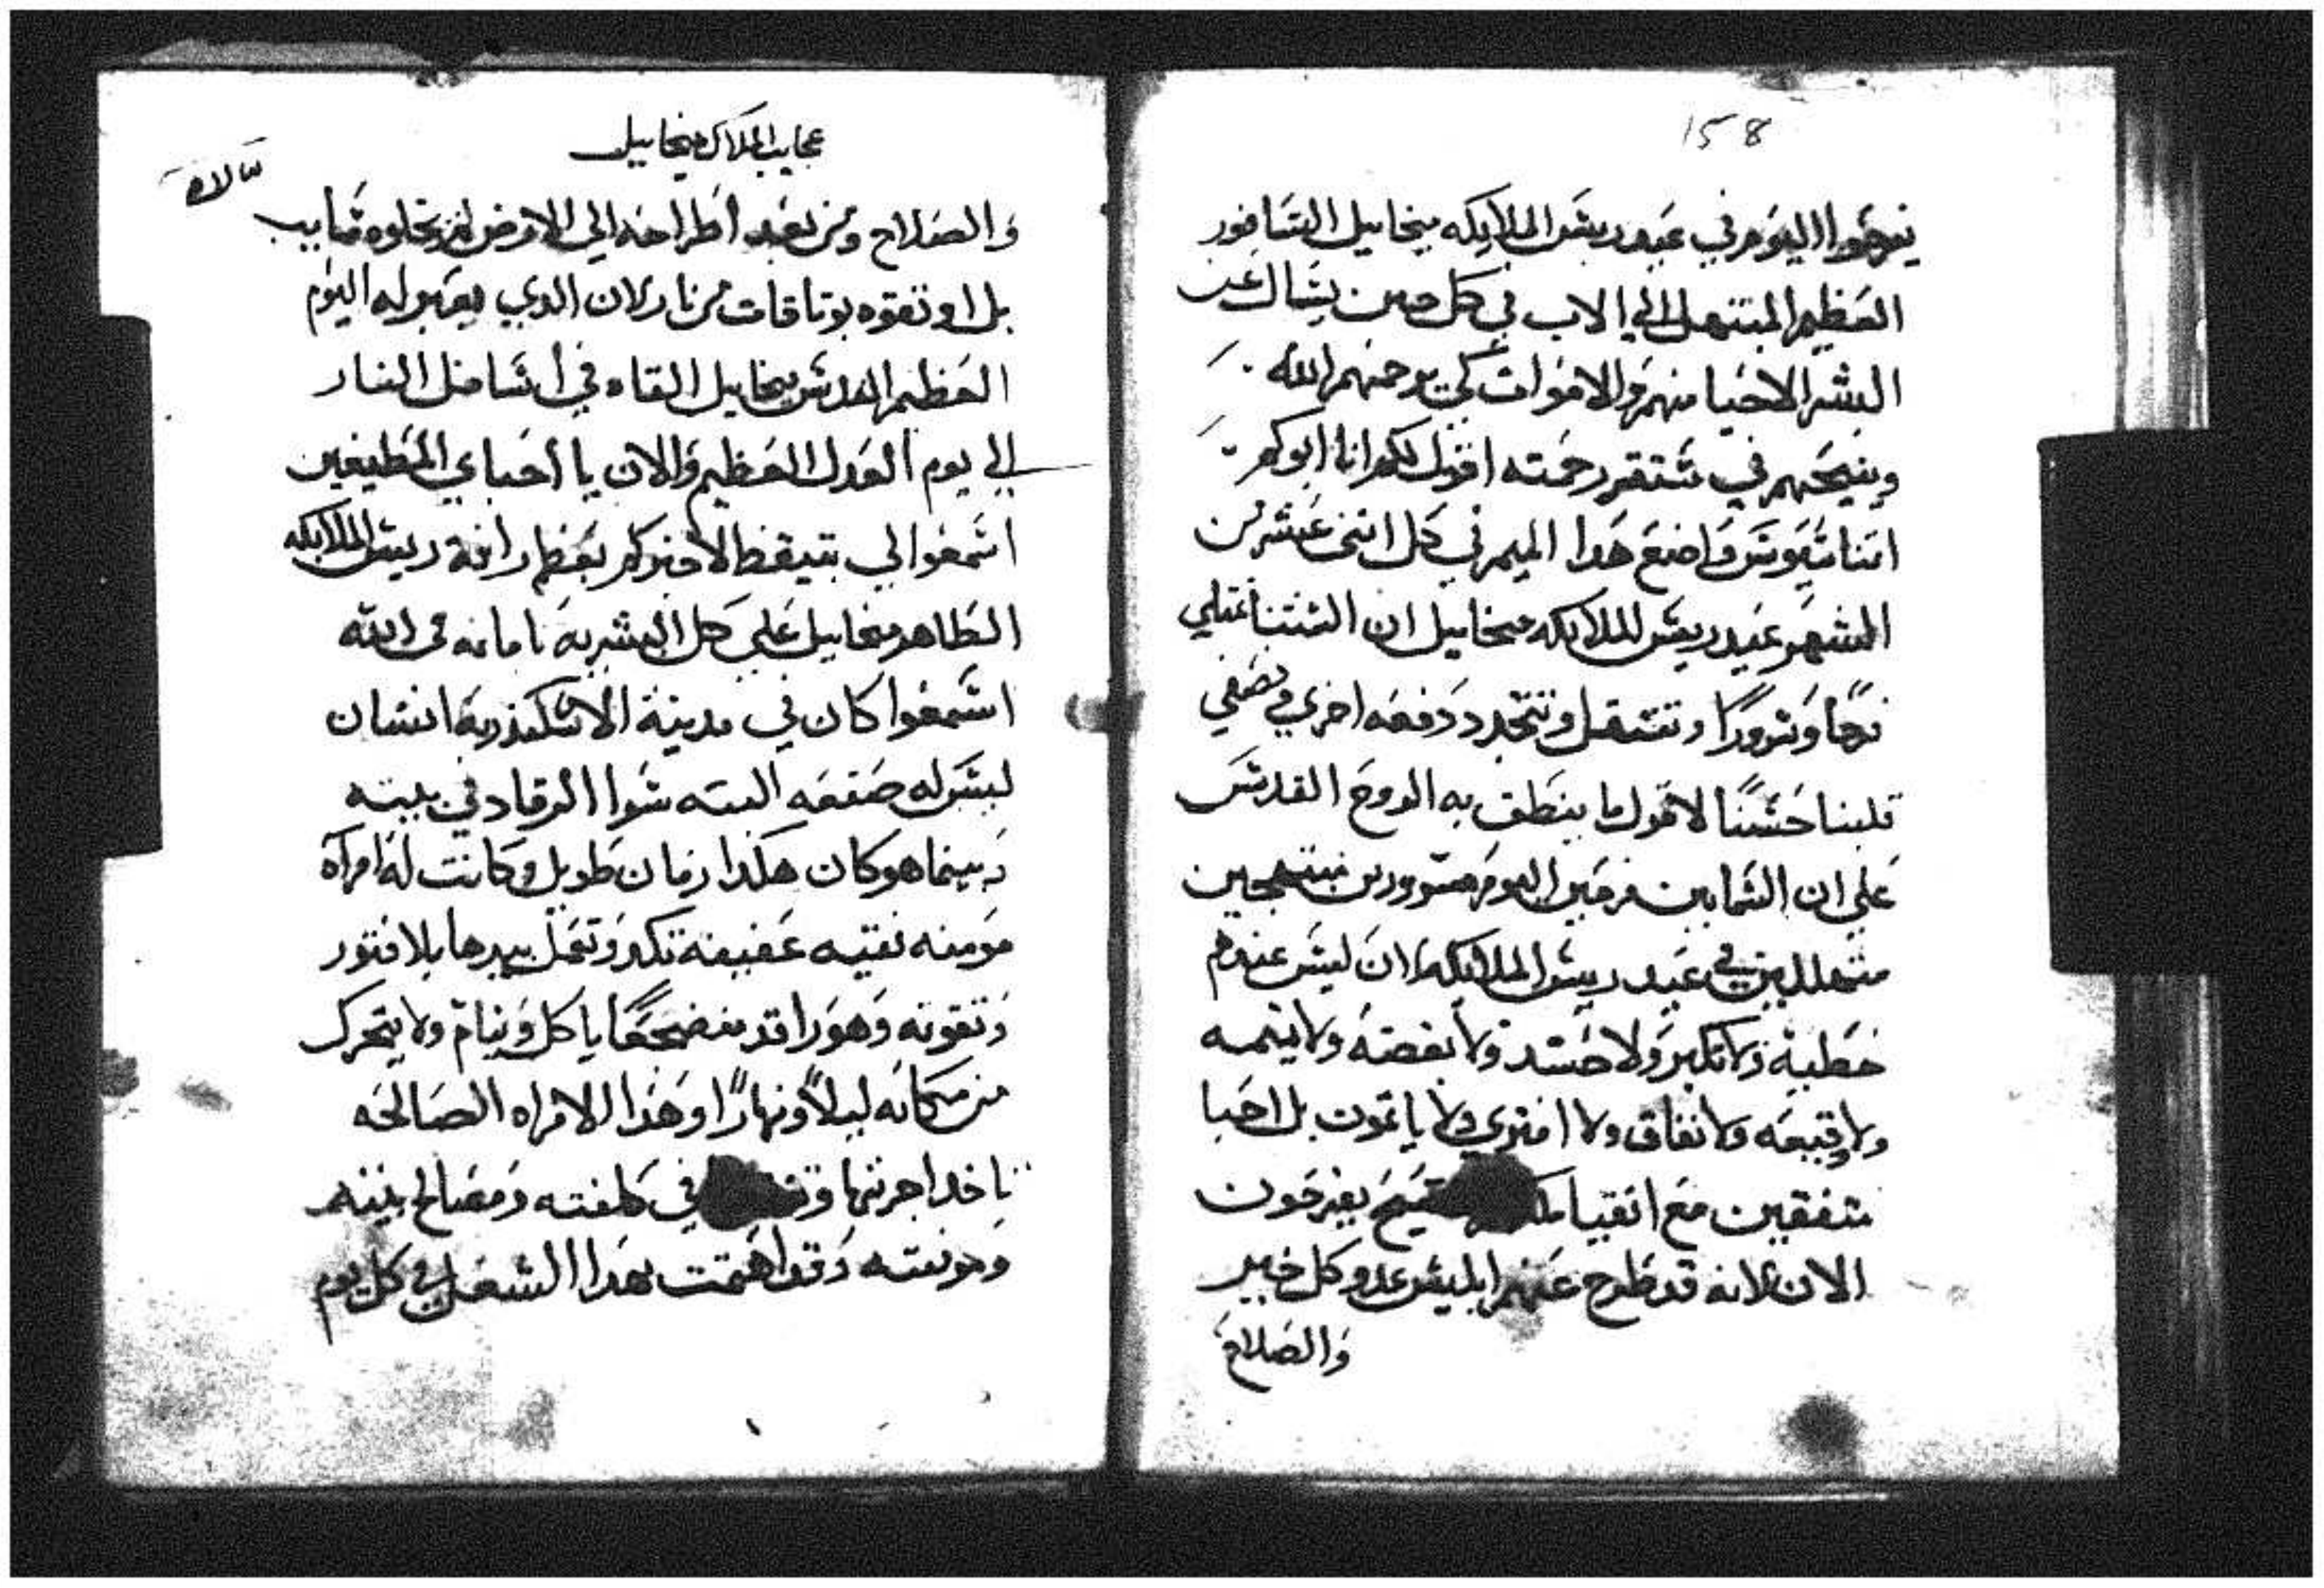 158
يفرحوا اليوم في عيد ريس الملايكه ميخاييل السافور
العظيم المبتهل الي الاب في كل حين يسال عن
البشر الاحيا منهم والاموات كي يرحمهم الله
وينيحهم في مستقر رحمته اقول لكم انا ابوكم
اتناسيوس واضع هدا الميمر في كل اتني عشر من
الشهر عيد ريس الملايكه ميخاييل ان السنتنا تمتلي
فرحًا وسرورًا وتتجدد دفعه اخري
قلبنا حسنًا لاقول ما ينطق به الروح القدس
علي ان السمايين فرحين اليوم مسرورين مبتهجين
متهللين في عيد ريس الملايكه ان ليس عندهم
خطية ولا تكبر ولا حسد ولا بغضه ولا نميمه
ولا وقيعه ولا نفاق ولا افتري ولا ياتمون بل احبا
متفقين مع اتقيا يفرحون
الان لانه قد طرح عنهم ابليس عدو كل خير
والصلاح
عجايب الملاك ميخاييل
والصلاح ومن بعد اطراحه الي الارض لم يخلوه سايب
بل اوتقوه بوتاقات من نار لان الدي يعيد له اليوم
العظيم القديس ميخاييل القاه في اسافل النار
الي يوم العدل العظيم والان يا احباي المطيعين
اسمعوا لي بتيقظ لاخبركم بعظم رافة ريس الملايكه
الطاهر ميخاييل علي كل البشريه بامانه في الله
اسمعوا كان في مدينة الاسكندريه انسان
ليس له صنعه البته سوا الرقاد في بيته
وبينما هو كان هكدا زمان طويل وكانت له امراه
مومنه نقيه عفيفة تكد وتعمل بيدها بلا فتور
وتقوته وهو راقد منضجعًا ياكل وينام ولا يتحرك
من مكانه ليلاً ونهارًا وهدا الامراه الصالحه
تاخد اجرتها في كلفته ومصالح بيتهم
ومونته وقد اهتمت بهدا الشغل في كل يوم